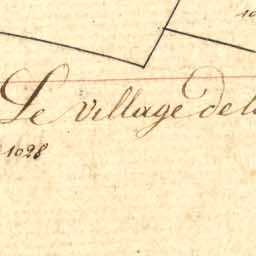 Le village de l
1028